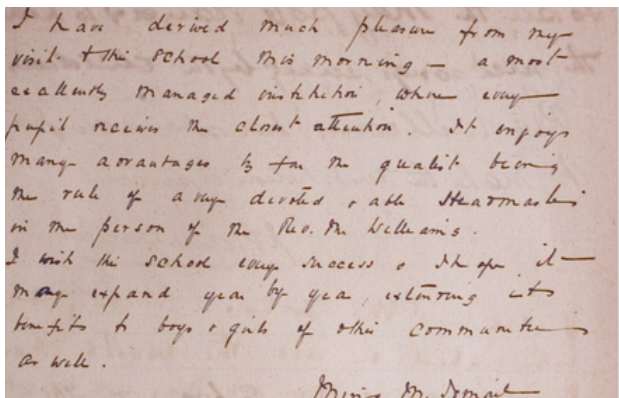 I have derived much pleasure from my
visit to this school this morning – a most
excellently managed institution, where every
pupil receives the closest attention. It enjoys
many advantages by far the greatest being
the rule of a very devoted & able Headmaster
in the person of the Rev. Mr Williams.
I wish the school every success & I hope it
may expand year by year, extending its
benefits to boys & girls of other communities
as well.
Mirza M. Ismail